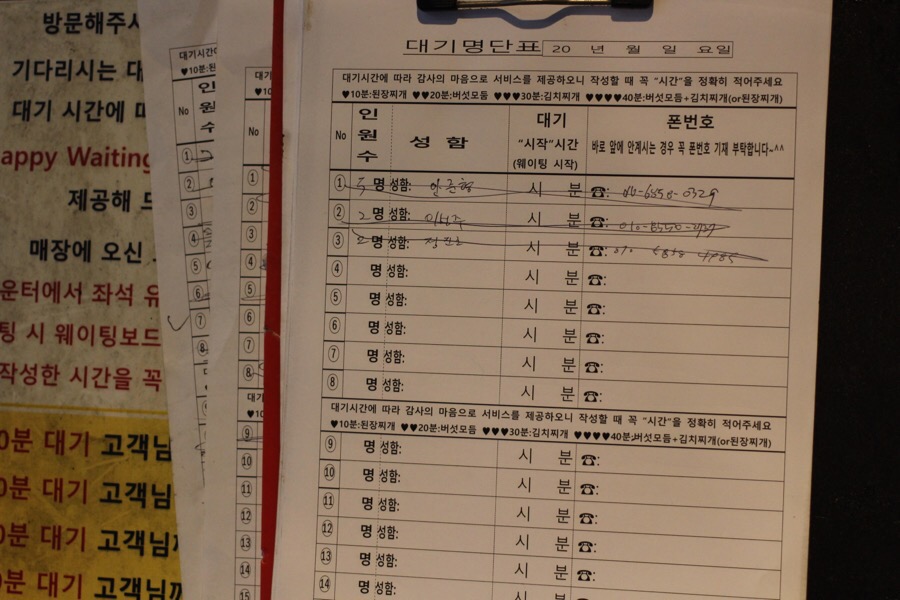 방문해주시
기다리시는 대
대기 시간에 따
appy Waiting
제공해 드
매장에 오신
운터에서 좌석 유
팅 시 웨이팅보드
작성한 시간을 꼭
0분 대기 고객님
0분 대기 고객님
0분 대기 고객님께
0분 대기 고객님께
대기시간
♥10분:된
No 인원수
①
②
③
④
⑤
⑥
⑦
⑧
대기
♥10
No
①
②
③
④
⑤
⑥
⑦
⑧
대기
♥10
⑨
⑩
⑪
⑫
⑬
⑭
15
대기명단표 20 년 월 일 요일
대기시간에 따라 감사의 마음으로 서비스를 제공하오니 작성할 때 꼭 "시간"을 정확히 적어주세요
♥10분:된장찌개 ♥♥20분:버섯모둠 ♥♥♥30분:김치찌개 ♥♥♥♥40분:버섯모듬+김치찌개(or된장찌개)
No 인원수 성함 대기 "시작"시간 (웨이팅 시작) 폰번호 바로 앞에 안계시는 경우 꼭 폰번호 기재 부탁합니다~^^
① 명 성함: 시 분 ☎:
② 2 명 성함: 시 분 ☎:
③ 2 명 성함: 시 분 ☎: 010
④ 명 성함: 시 분 ☎:
⑤ 명 성함: 시 분 ☎:
⑥ 명 성함: 시 분 ☎:
⑦ 명 성함: 시 분 ☎:
⑧ 명 성함: 시 분 ☎:
대기시간에 따라 감사의 마음으로 서비스를 제공하오니 작성할 때 꼭 "시간"을 정확히 적어주세요
♥10분:된장찌개 ♥♥20분:버섯모둠 ♥♥♥30분:김치찌개 ♥♥♥♥40분:버섯모듬+김치찌개(or된장찌개)
⑨ 명 성함: 시 분 ☎:
⑩ 명 성함: 시 분 ☎:
⑪ 명 성함: 시 분 ☎:
⑫ 명 성함: 시 분 ☎:
⑬ 명 성함: 시 분 ☎:
⑭ 명 성함: 시 분 ☎: